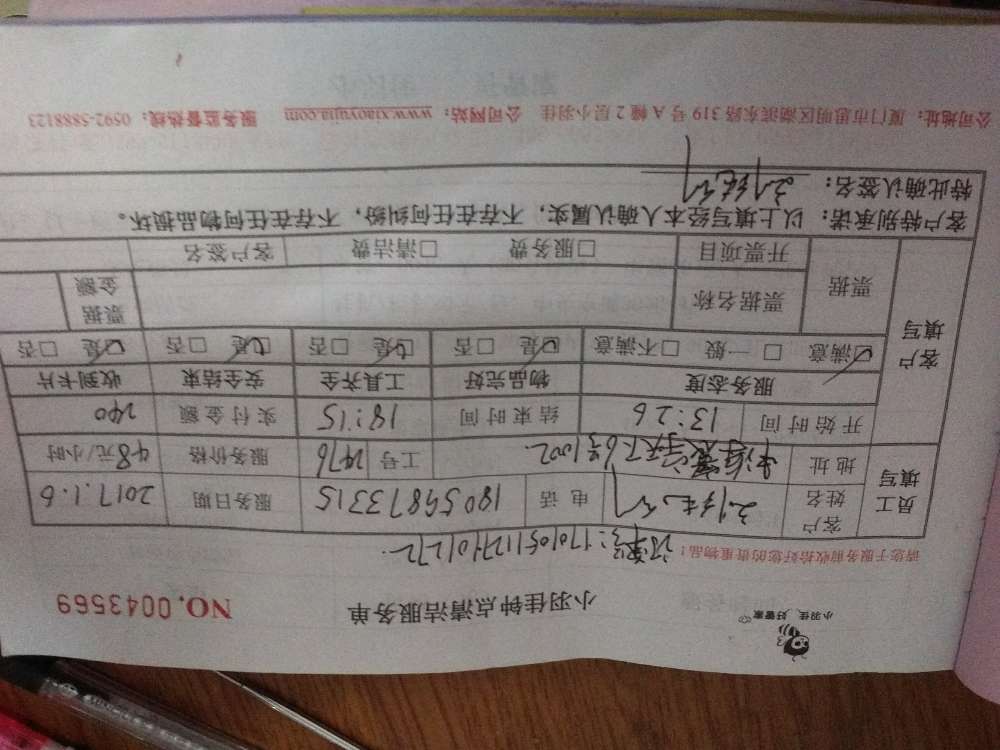 小羽佳,好管家
小羽佳钟点清洁服务单
NO.0043569
请您于服务前收拾好您的贵重物品!
员工填写
客户姓名 电话 18056873315 服务日期 2017.1.6
地址 6号1002 工号 2476 服务价格 48元/小时
开始时间 13:26 结束时间 18:15 实付金额 240
客户填写
服务态度 物品完好 工具齐全 安全结束 收到卡片
☑满意 □一般 □不满意 ☑是 □否 ☑是 □否 ☑是 □否 ☑是 □否
票据 票据名称 票据金额
开票项目 □服务费 □清洁费 客户签名
客户特别承诺:以上填写经本人确认属实,不存在任何纠纷,不存在任何物品损坏。
特此确认签名:
公司地址:厦门市思明区湖滨东路319号A幢2层小羽佳 公司网站:www.xiaoyujia.com 服务监督热线:0592-5888123